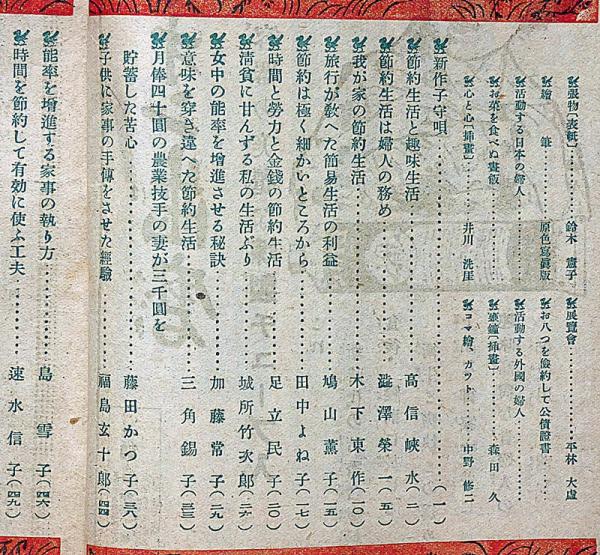 張物〔表紙〕………鈴木 壽子
繪筆………原色寫眞版
活動する日本の婦人
お菜を食べぬ晝飯
心と心〔挿畫〕………井川 洗厓
展覽會………平林 大虛
お八つを儉約して公債證書
活動する外國の婦人
〔挿畫〕………森田 久
コマ繪、カット………中野 修二
新作子守唄………(一)
節約生活と趣味生活………高信峽水(二)
節約生活は婦人の務め………澁澤榮一(五)
我が家の節約生活………木下東作(一〇)
旅行が敎へた簡易生活の利益………鳩山薰子(一五)
節約は極く細かいところから………田中よね子(一七)
時間と勞力と金錢の節約生活………足立民子(二〇)
淸貧に甘んずる私の生活ぶり………城所竹次郞(二六)
女中の能率を增進させる秘訣………加藤常子(二九)
意味を穿き違へた節約生活………三角錫子(三三)
月俸四十圓の農業技手の妻が三千圓を
貯蓄した苦心………藤田かつ子(三六)
子供に家事の手傳をさせた經驗………福島玄十郞(四四)
能率を增進する家事の執り方………島雪子(四六)
時間を節約して有効に使ふ工夫………速水信子(四九)